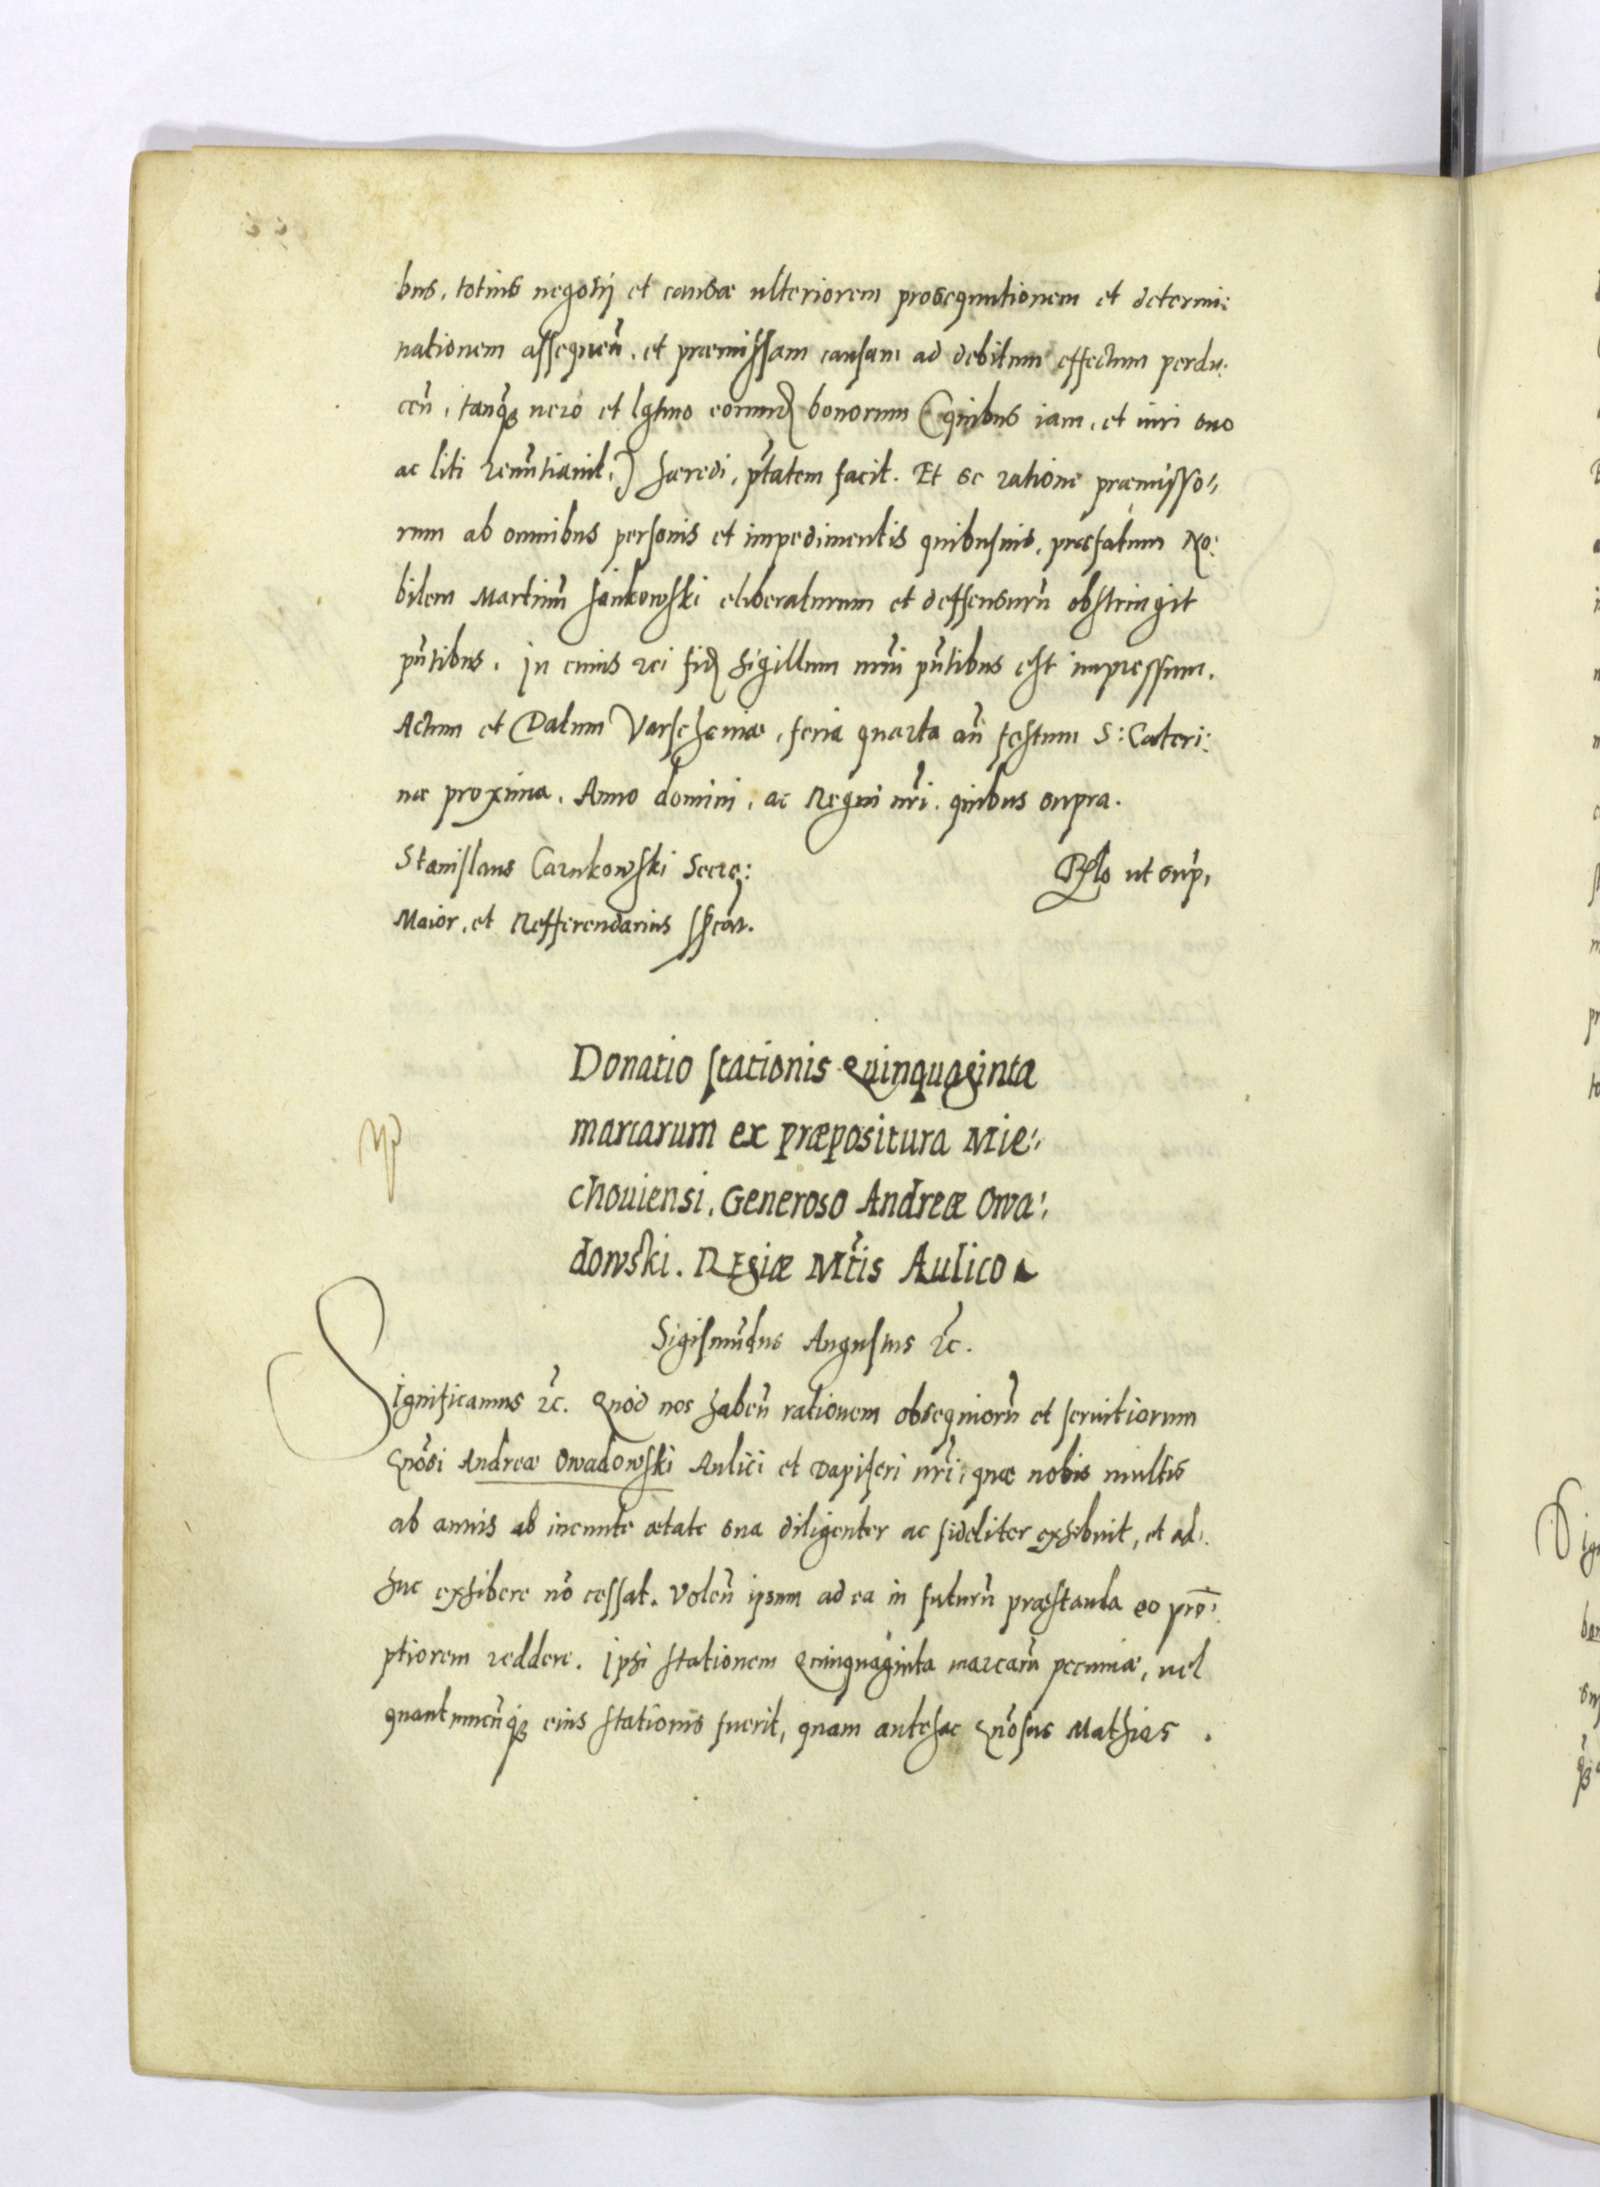 bus, totius negotij et causæ ulteriorem prosequutionem et determi:
nationem assequen̄, et præmissam causam ad debitum effectum perdu:
cen̄, tanq̄ꝫ uero et lgtmo eorumd̶ bonorum (quibus iam, et iuri suo
ac liti renūtiauit,) hæredi, p̄tatem facit. Et se ratione præmisso:,
rum ab omnibus personis et impedimentis quibusuis, præfatum No:
bilem Martinū Jankowski eliberaturum et deffensurū obstringit
pn̄tibus. In cuius rei fid̶ sigillum nrūi pn̄tibus est impressum.
Actum et Datum Varscheuiæ, feria quarta an̄ festum S: Cateri:
næ proxima. Anno domini, ac Regni nr̄i quibus supra.
Stanislaus Carnkowski Secre: Rela ut sup,
Maior, et Refferendarius sst.
Donatio stationis Quinquaginta
marcarum ex præpositura Mie:,
chouiensi, Generoso Andreæ Owa:,
dowski. Regiæ Mt̄is Aulico
Sigismūdus Augustus ꝛc̄.
Significamus ꝛc̄. Quod nos haben̄ rationem obsequiorū et seruitiorum
Gn̄osi Andreæ Owadowski Aulici et Dapiferi nr̄i, quæ nobis multis
ab annis ab ineunte ætate sua diligenter ac fideliter exhibuit, et ad:
huc exhibere nō cessat. Volen̄ ipsum ad ea in futurū præstanda eo prō:
ptiorem reddere. Ipsi stationem Quinquaginta marcarū pecuniæ, uel
quantumcūqꝫ eius stationis fuerit, quam antehac Gn̄osus Mathias .